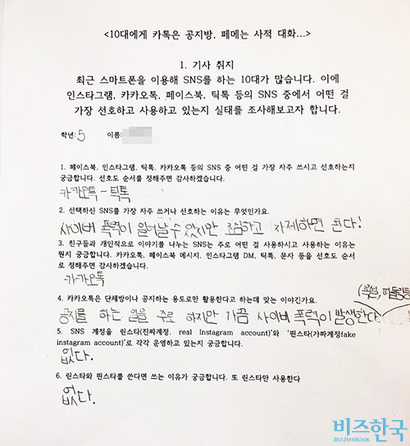 <10대에게 카톡은 공지방, 페메는 사적 대화...>
1. 기사 취지
최근 스마트폰을 이용해 SNS를 하는 10대가 많습니다. 이에
인스타그램, 카카오톡, 페이스북, 틱톡 등의 SNS 중에서 어떤 걸
가장 선호하고 사용하고 있는지 실태를 조사해보고자 합니다.
학년: 5 이름:
1. 페이스북, 인스타그램, 틱톡, 카카오톡 등의 SNS 중 어떤 걸 가장 자주 쓰시고 선호하는지
궁금합니다. 선호도 순서를 정해주면 감사하겠습니다.
카카오톡 - 틱톡
2. 선택하신 SNS를 가장 자주 쓰거나 선호하는 이유는 무엇인가요.
사이버 폭력이 일어날수 있지만 조심하고 자제하면 된다!
3. 친구들과 개인적으로 이야기를 나누는 SNS는 주로 어떤 걸 사용하시고 사용하는 이유는
뭔지 궁금합니다. 카카오톡, 페이스북 메시지, 인스타그램 DM, 틱톡, 문자 등을 선호도 순서
로 정해주면 감사하겠습니다.
카카오톡
4. 카카오톡은 단체방이나 공지하는 용도로만 활용한다고 하는데 맞는 이야긴가요.
공지를 하는 일을 주로 하지만 가끔 사이버 폭력이 발생한다
5. SNS 계정을 린스타(진짜계정, real Instagram account)'와 '핀스타(가짜계정fake
instagram account)'로 각각 운영하고 있는지 궁금합니다.
없다.
6. 린스타와 핀스타를 쓴다면 쓰는 이유가 궁금합니다. 또 린스타만 사용한다
없다.
비즈한국
BizHankook